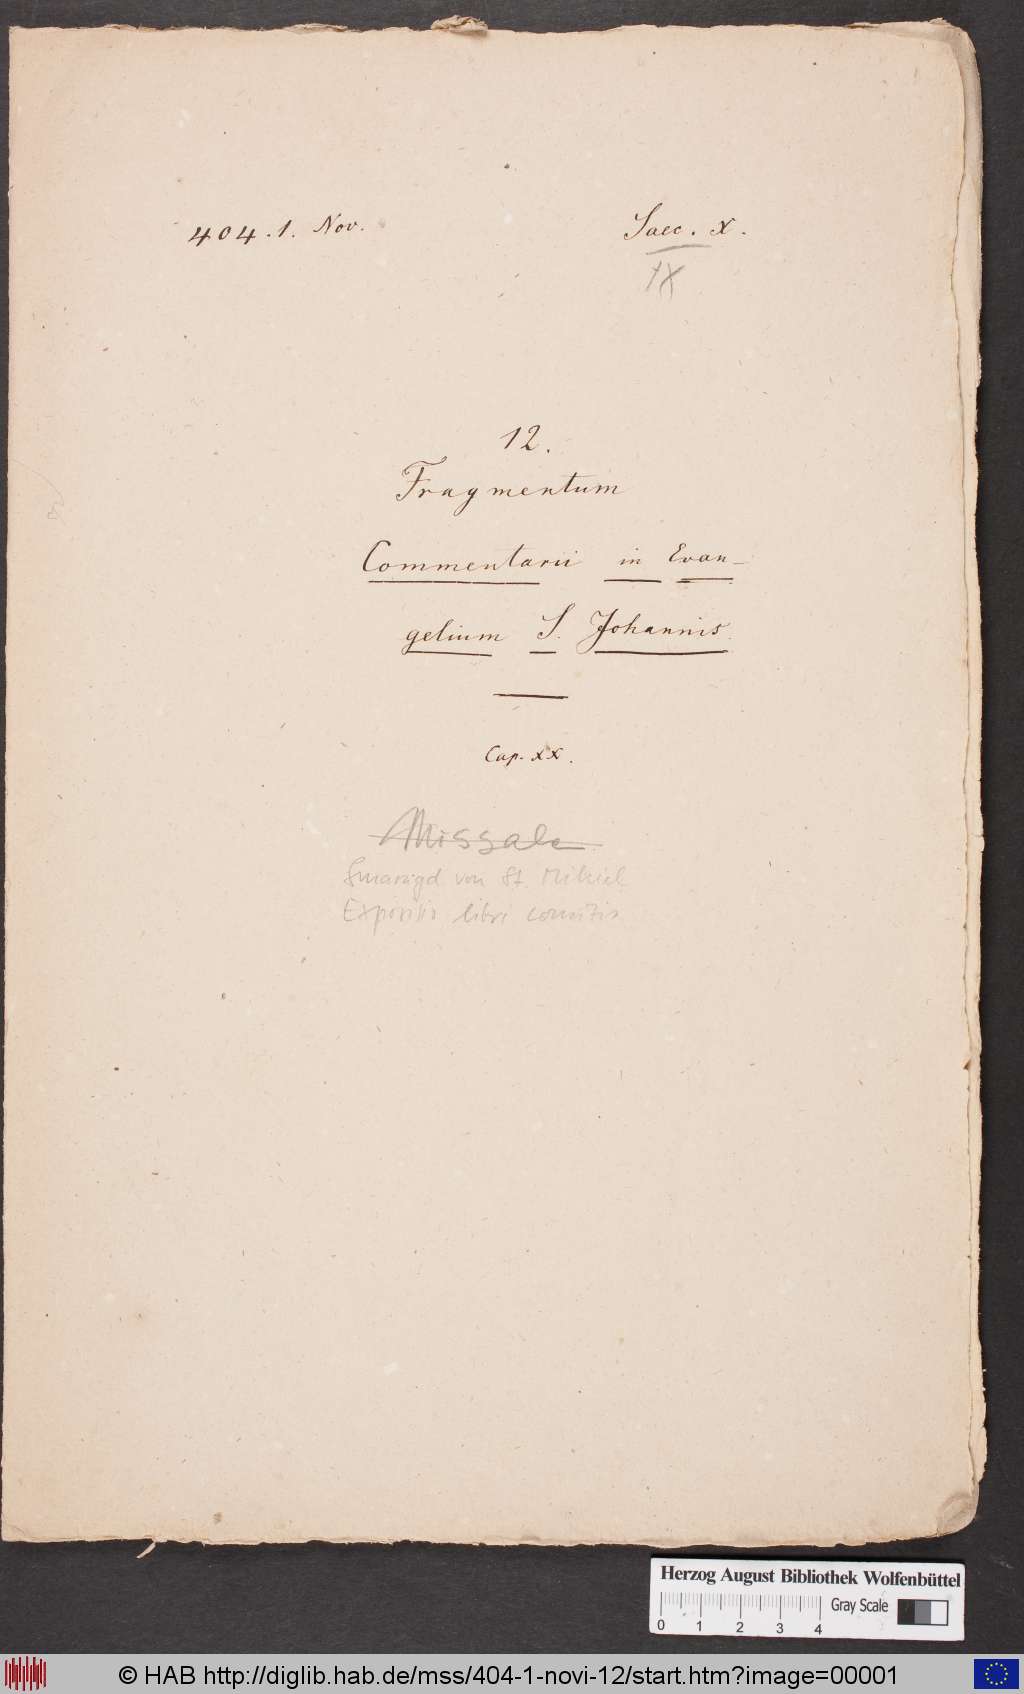 404.1. Nov.
Saec. X.
IX
12.
Fragmentum
Commentarii in Evan-
gelium S. Johannis.
Cap. XX.
Missale
Smaragd von St Mihiel
Expositio libri comitis
Herzog August Bibliothek Wolfenbüttel
Gray Scale
0 1 2 3 4
© HAB http://diglib.hab.de/mss/404-1-novi-12/start.htm?image=00001